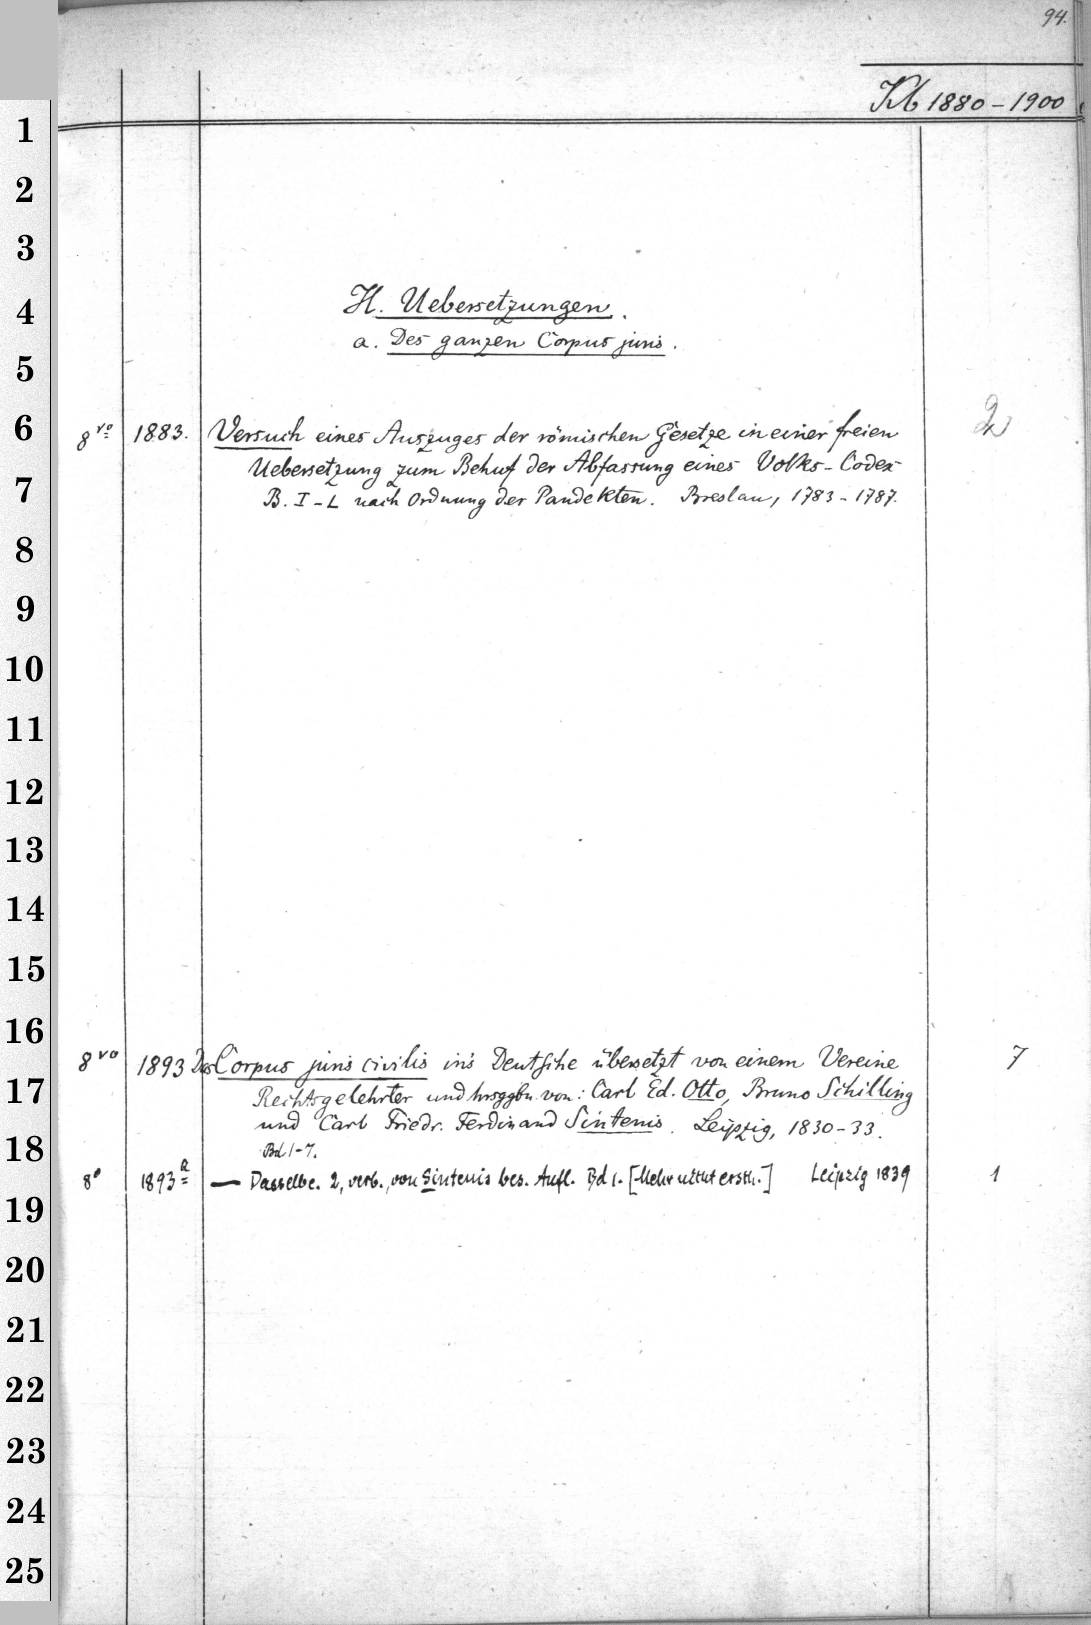 94.
Kb 1880-1900
1
2
3
4
5
6
7
8
9
10
11
12
13
14
15
16
17
18
19
20
21
22
23
24
25
H. Uebersetzungen.
a. Des ganzen Corpus juris.
8vo 1883. Versuch eines Auszuges der römischen Gesetze in einer freien
Uebersetzung zum Behuf der Abfassung eines Volks-Codex
B. I-L nach Ordnung der Pandekten. Breslau, 1783-1787.
8vo 1893 Das Corpus juris civilis in's Deutsche übersetzt von einem Vereine 7
Rechtsgelehrter und hrsggbn von: Carl Ed. Otto, Bruno Schilling
und Carl Friedr. Ferdinand Sintenis. Leipzig, 1830-33.
Bd 1-7.
8° 1893a — Dasselbe. 2, verb., von Sintenis bes. Aufl. Bd 1. [Mehr nicht ersch.] Leipzig 1839 1